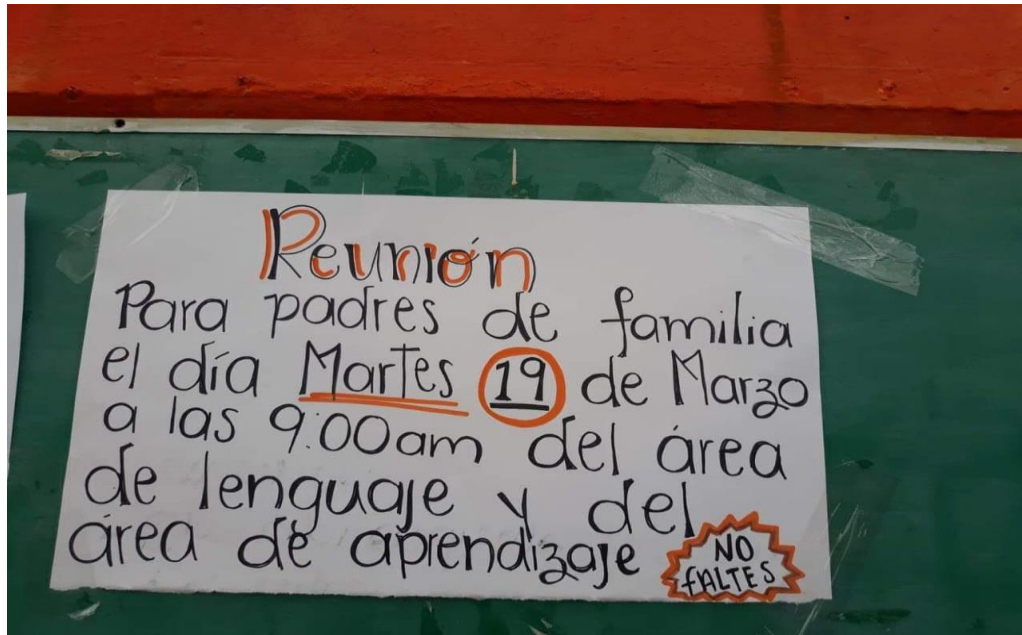 Reunión
Para padres de familia
el día Martes 19 de Marzo
a las 9:00am del área
de lenguaje y del
área de aprendizaje
NO
FALTES